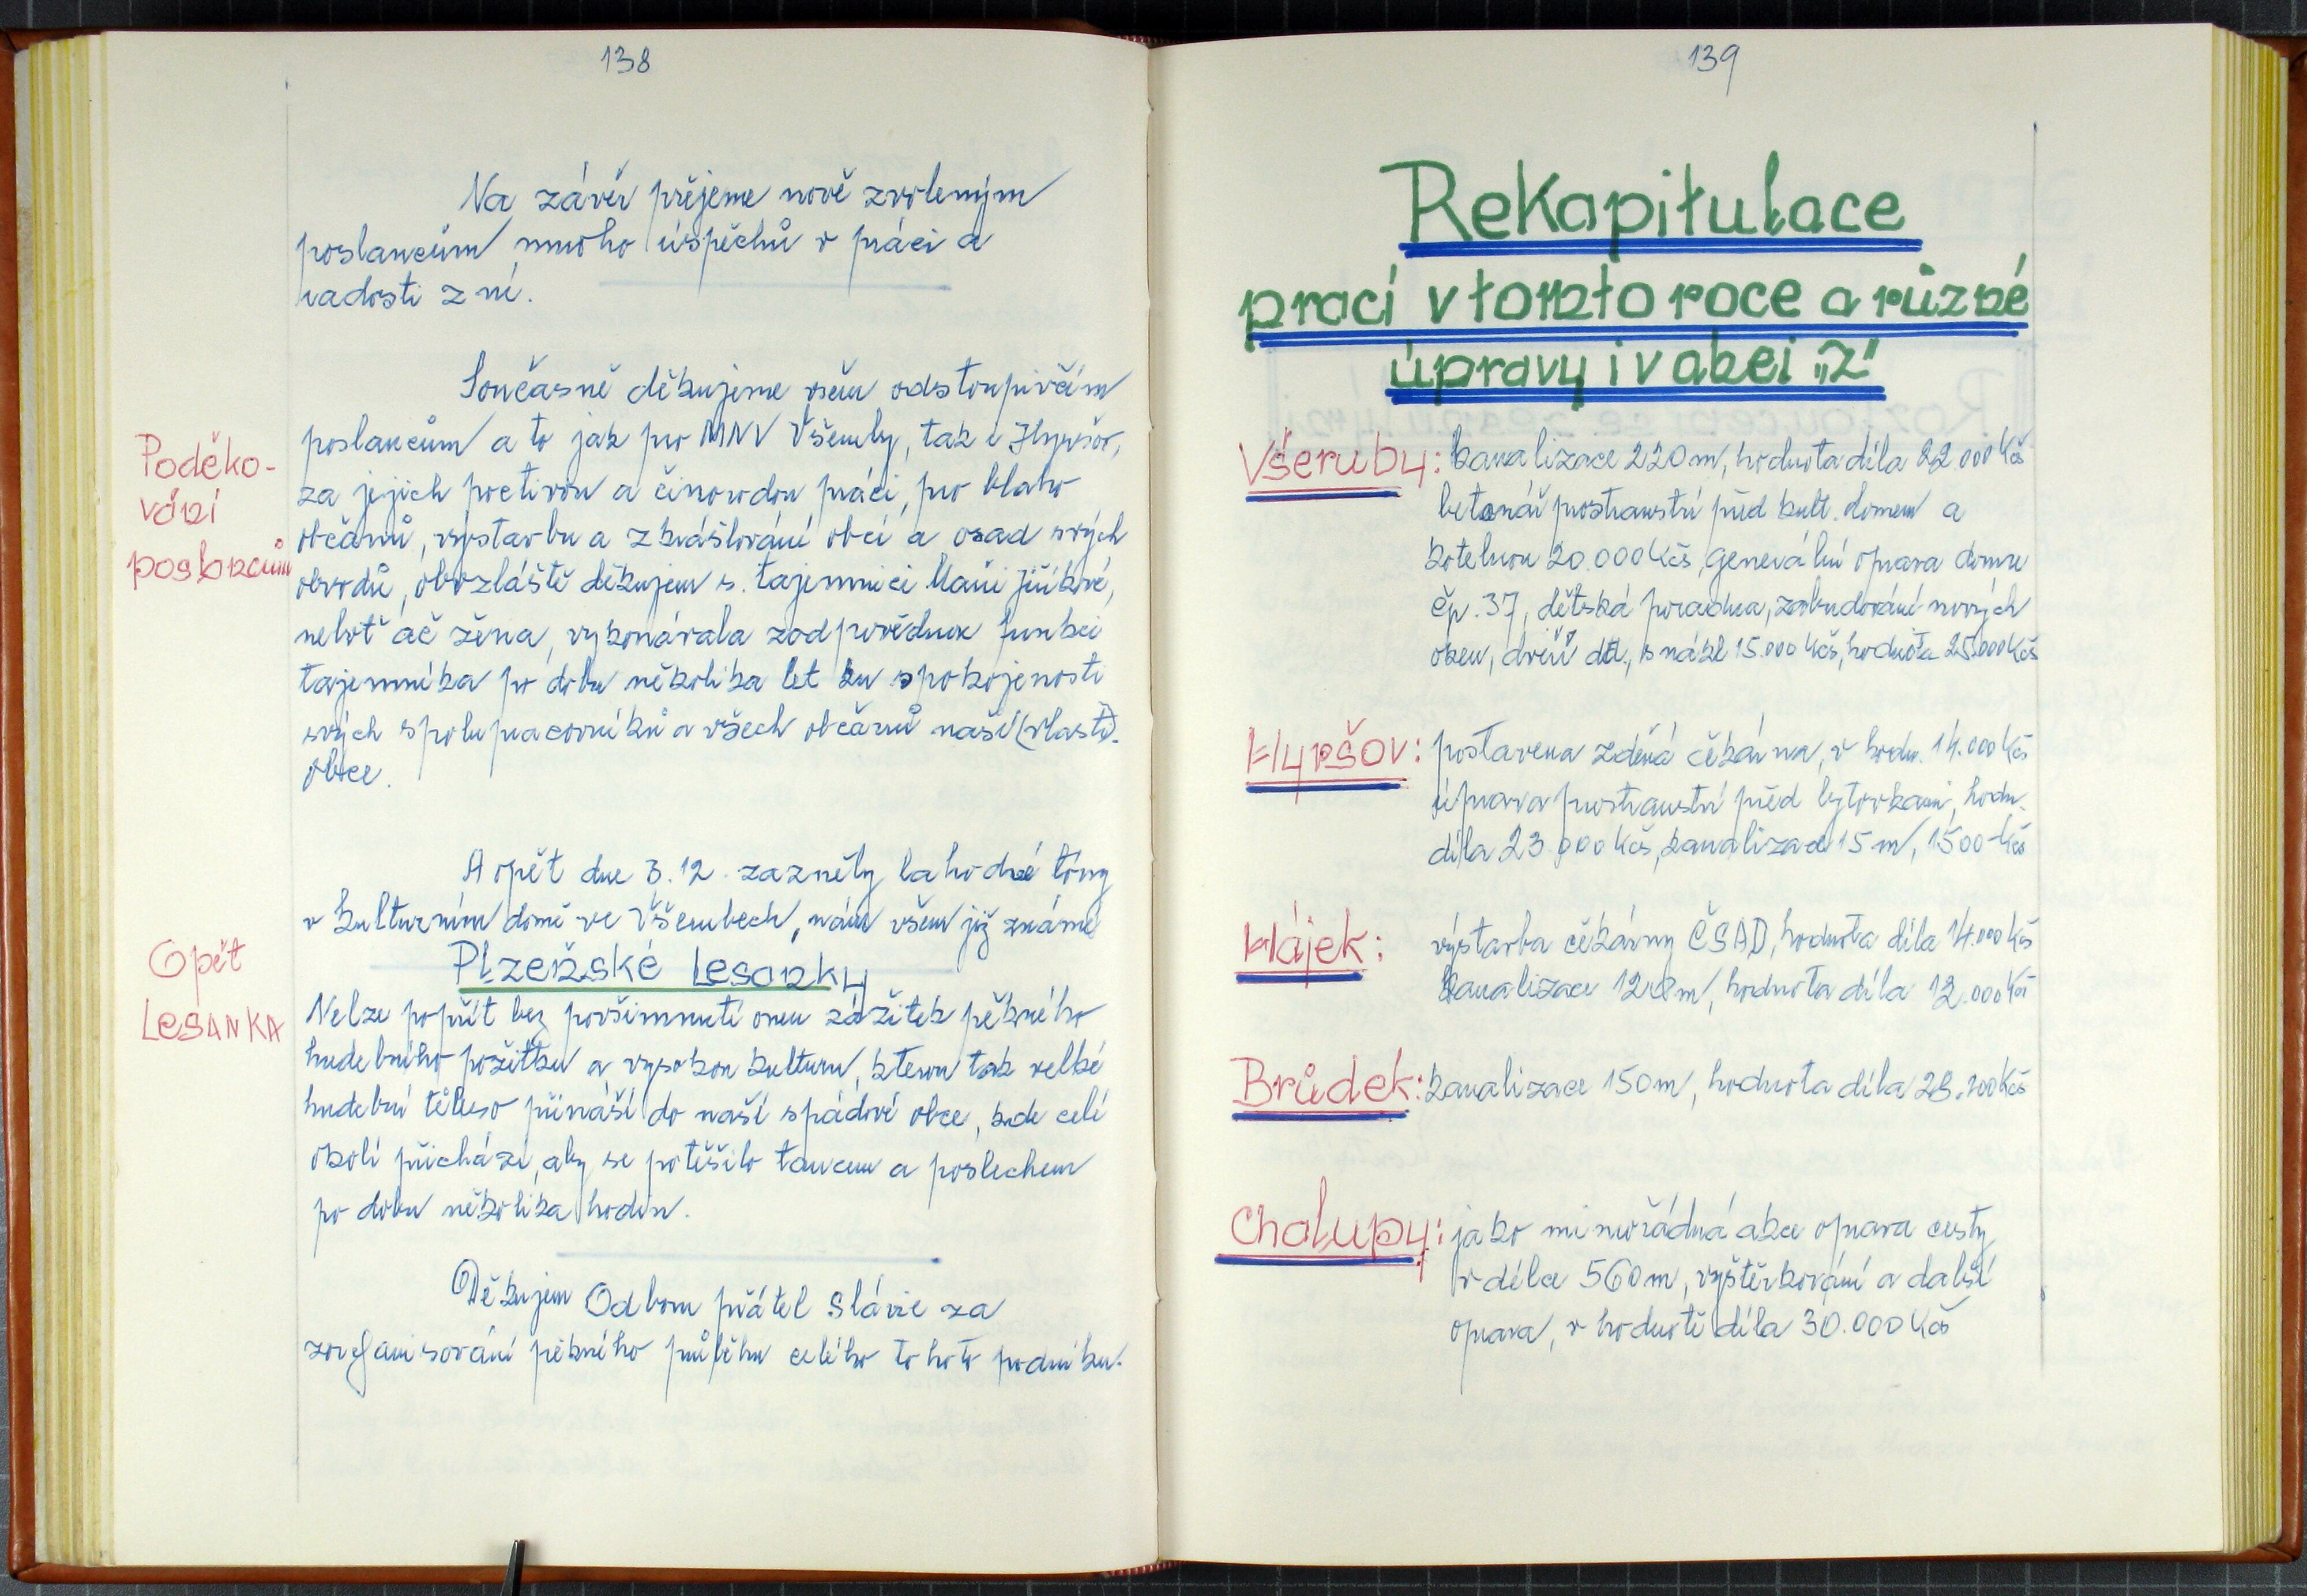 138
Na závěr přejeme nově zvoleným
poslancům mnoho úspěchů v práci a
radosti z ní.
Poděko-
vání
poslancům
Současně děkujeme všem odstoupivším
poslancům a to jak pro MNV Všeruby, tak i Hyršov,
za jejich poctivou a činorodou práci, pro blaho
občanů, výstavbu a zkrášlování obcí a osad svých
obvodů, obvzláště děkujem s. tajemnici Maři Jiříkové,
neboť ač žena, vykonávala zodpovědnou funkci
tajemníka po dobu několika let ku spokojenosti
svých spolupracovníků a všech občanů naší (vlasti).
obce.
Opět
LESANKA
A opět dne 3.12. zazněly lahodné tóny
v kulturním domě ve Všerubech, nám všem již známé
Plzeňské Lesanky
Nelze popřít bez povšimnutí onen zážitek pěkného
hudebního požitku a vysokou kulturu, kterou tak velké
hudební těleso přináší do naší spádové obce, kde celé
okolí přichází, aby se potěšilo tancem a poslechem
po dobu několika hodin.
Děkujem Odboru přátel Slávie za
zorganisování pěkného průběhu celého tohoto podniku.
139
Rekapitulace
prací v tomto roce a různé
úpravy i v akci „Z"
Všeruby: kanalizace 220m, hodnota díla 22.000 Kčs
betonáž prostranství před kult. domem a
kotelnou 20.000 Kčs, generální oprava domu
čp. 37, dětská poradna, zabudování nových
oken, dveří atd., s nákl 15.000 Kčs, hodnota 25.000 Kčs
Hyršov: postavena zděná čekárna, v hodn. 14.000 Kčs
úprava prostranství před bytovkami, hodn.
díla 23.000 Kčs, kanalizace 15 m, 1500 Kčs
Hájek: výstavba čekárny ČSAD, hodnota díla 14.000 Kčs
kanalizace 120m, hodnota díla 12.000 Kčs
Brůdek: kanalizace 150m, hodnota díla 28.200 Kčs
Chalupy: jako mimořádná akce oprava cesty
v délce 560m, vyštěrkování a další
oprava, v hodnotě díla 30.000 Kčs